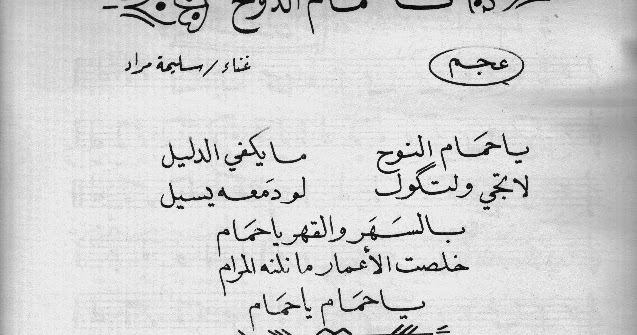 حمام الدوح
عجم
غناء / سليمة مراد
ياحمام النوح مايكفي الدليل
لاتجي ولتگول لو دمعه يسيل
بالسهر والقهر ياحمام
خلصت الأعمار مانلنه المرام
ياحمام ياحمام